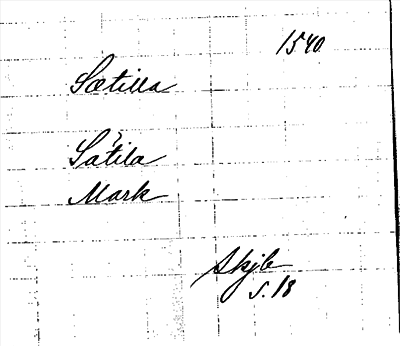 1540.
Sætilla
Sätila
Mark
Skjb
s. 18